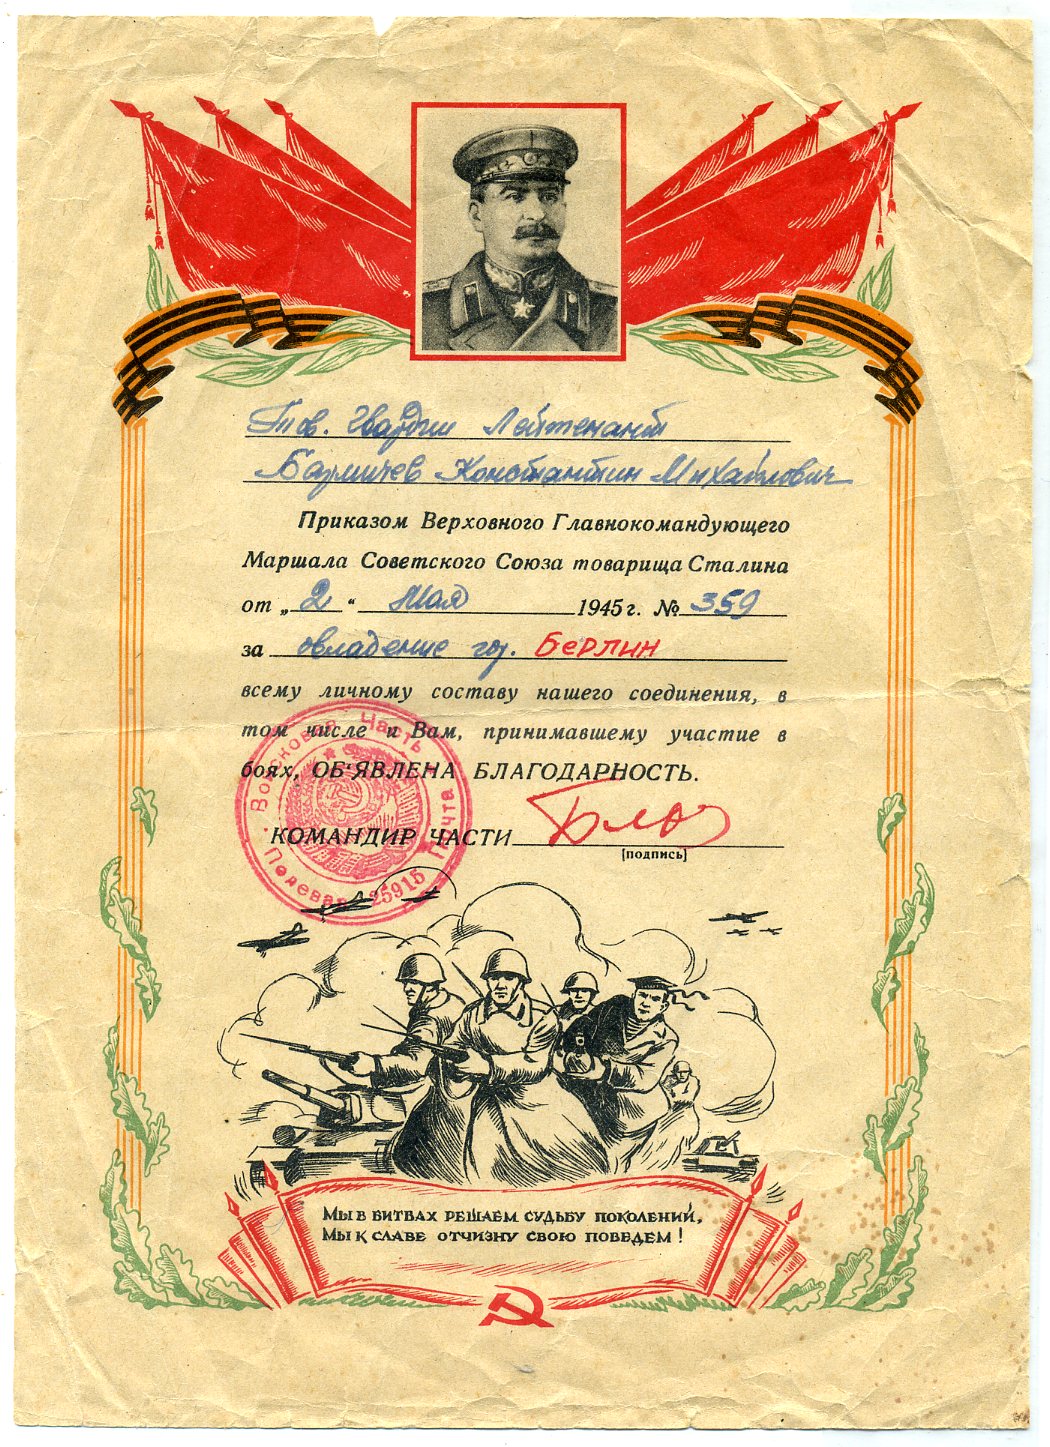 Тов. Гвардии Лейтенант
Константин Михайлович
Приказом Верховного Главнокомандующего
Маршала Советского Союза товарища Сталина
от „2“ Мая 1945 г. № 359
за овладение гор. Берлин
всему личному составу нашего соединения, в
том числе и Вам, принимавшему участие в
боях, ОБ‘ЯВЛЕНА БЛАГОДАРНОСТЬ.
КОМАНДИР ЧАСТИ
[подпись]
Войсковая Часть
Полевая Почта
25915
Мы в битвах решаем судьбу поколений,
Мы к славе отчизну свою поведем!